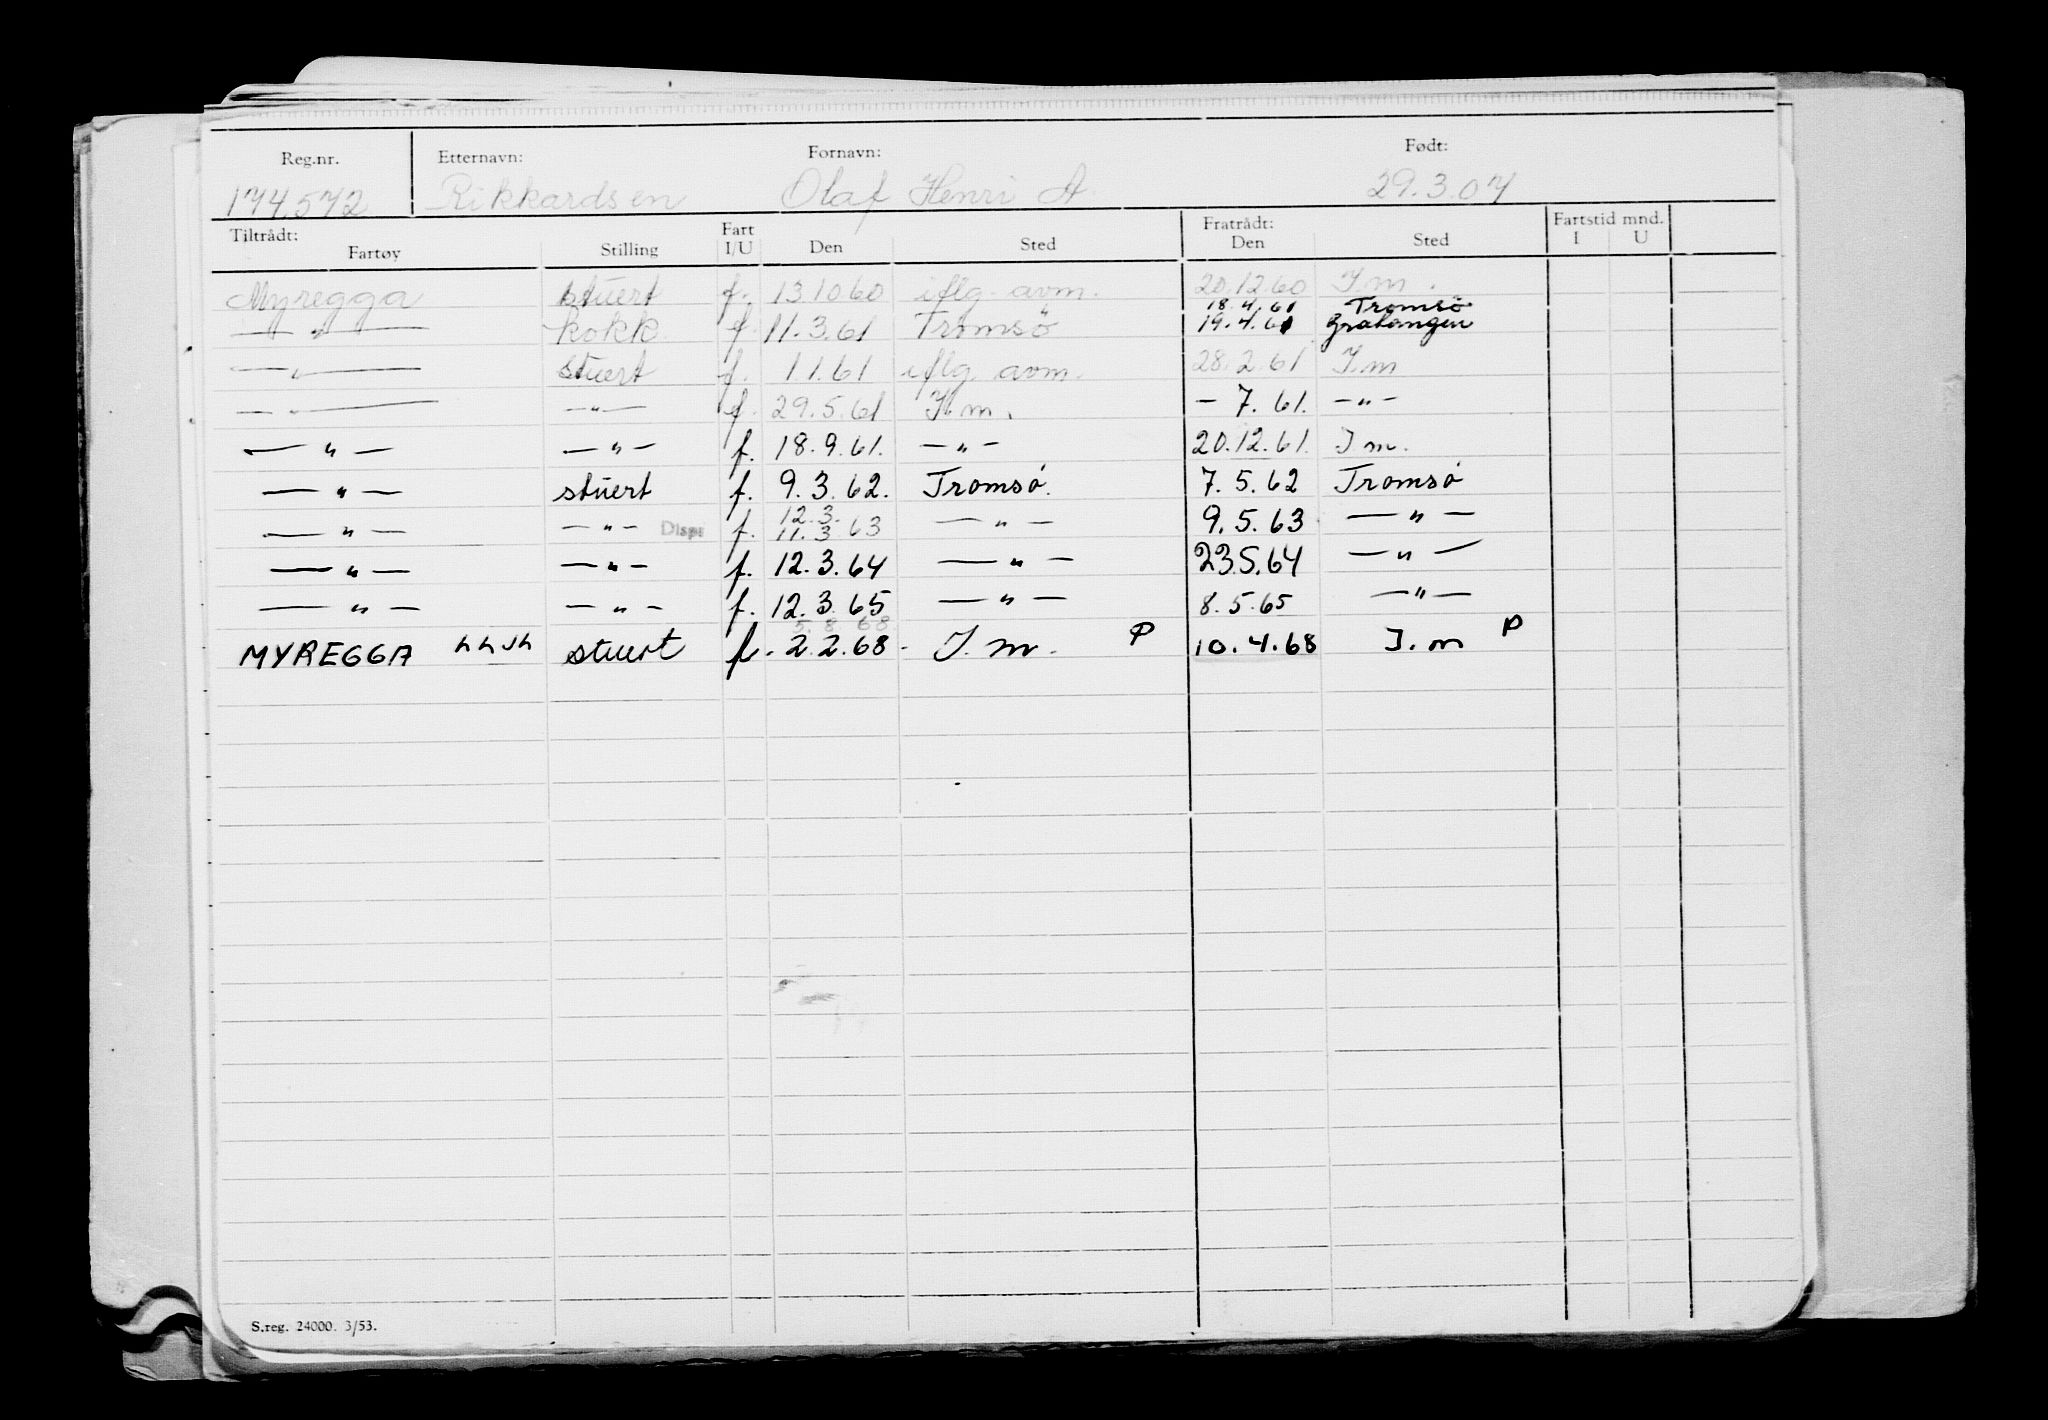 Reg.nr. Etternavn: Fornavn: Født:
174.572 Rikkardsen Olaf Henri A. 29.3.07
Tiltrådt: Fart Fratrådt: Fartstid mnd.
Fartøy Stilling I/U Den Sted Den Sted I U
Myregga stuert f. 13.10.60 iflg. avm. 20.12.60 I.m.
18.4.61 Tromsø
— " — kokk f. 11.3.61 Tromsø 19.4.61 Gratangen
— " — stuert f. 1.1.61 iflg. avm. 28.2.61 I.m
— " — — " — f. 29.5.61 I.m. - 7. 61. — " —
— " — — " — f. 18.9.61. — " — 20.12.61. I m.
— " — stuert f. 9.3.62. Tromsø. 7.5.62 Tromsø
12.3.
— " — — " — Disp f. 11.3 63 — " — 9.5.63 — " —
— " — — " — f. 12.3.64 — " — 23.5.64 — " —
— " — — " — f. 12.3.65 — " — 8.5.65 — " —
MYREGGA stuert f. 2.2.68. I.m. P 10.4.68 I.m P
S.reg. 24000. 3/53.